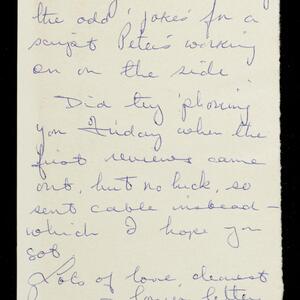 the odd 'jokes' for a
script Peter's working
on on the side.
Did try 'phoning
you Friday when the
first reviews came
out, but no luck, so
sent cable instead –
which I hope you
got
Lots of love, dearest
letter